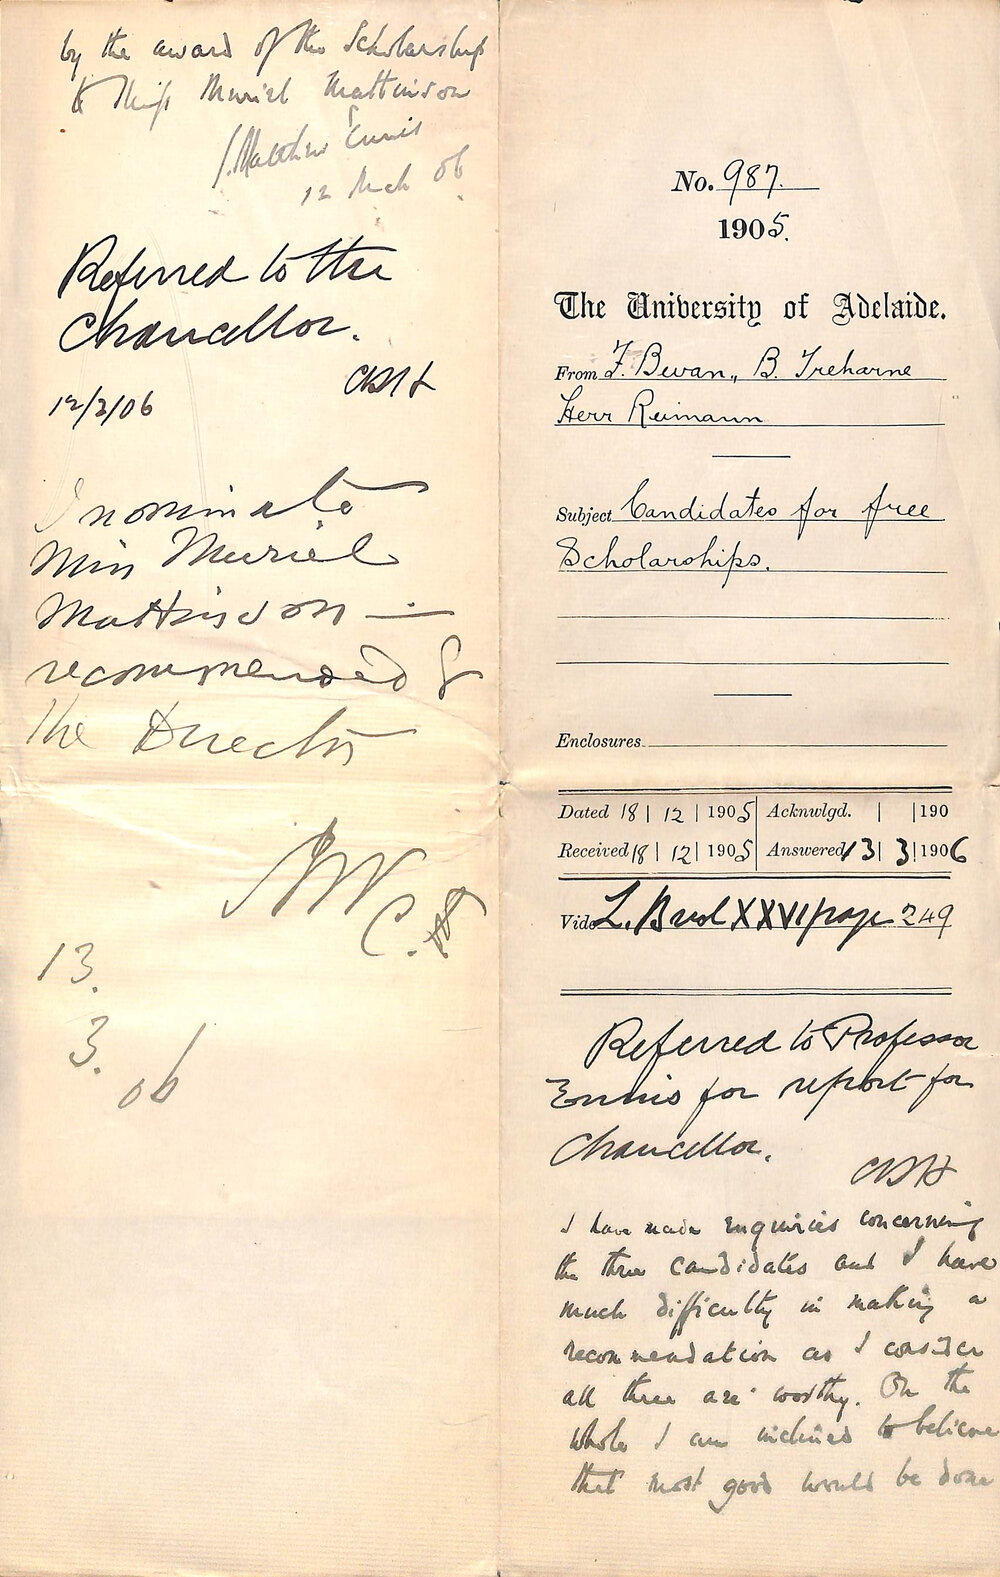 No. 987.
1905.
The University of Adelaide.
From F. Bevan, B. Treharne
Herr Reimann
Subject Candidates for free
Scholarships.
Enclosures
Dated 18 | 12 | 1905 Acknwlgd. | | 190
Received 18 | 12 | 1905 Answered 13 | 3 | 1906
Vide L. Book XXVI page 249
Referred to Professor
Ennis for report for
Chancellor.
I have made enquiries concerning
the three candidates and I have
much difficulty in making a
recommendation as I consider
all three are worthy. On the
whole I am inclined to believe
that most good would be done
by the award of the Scholarship
to Miss Muriel Mattinson
J. Matthew Ennis
12 Mch 06
Referred to the
Chancellor.
12/3/06
I nominate
Miss Muriel
Mattinson —
recommended by
the Director
13.
3.
06